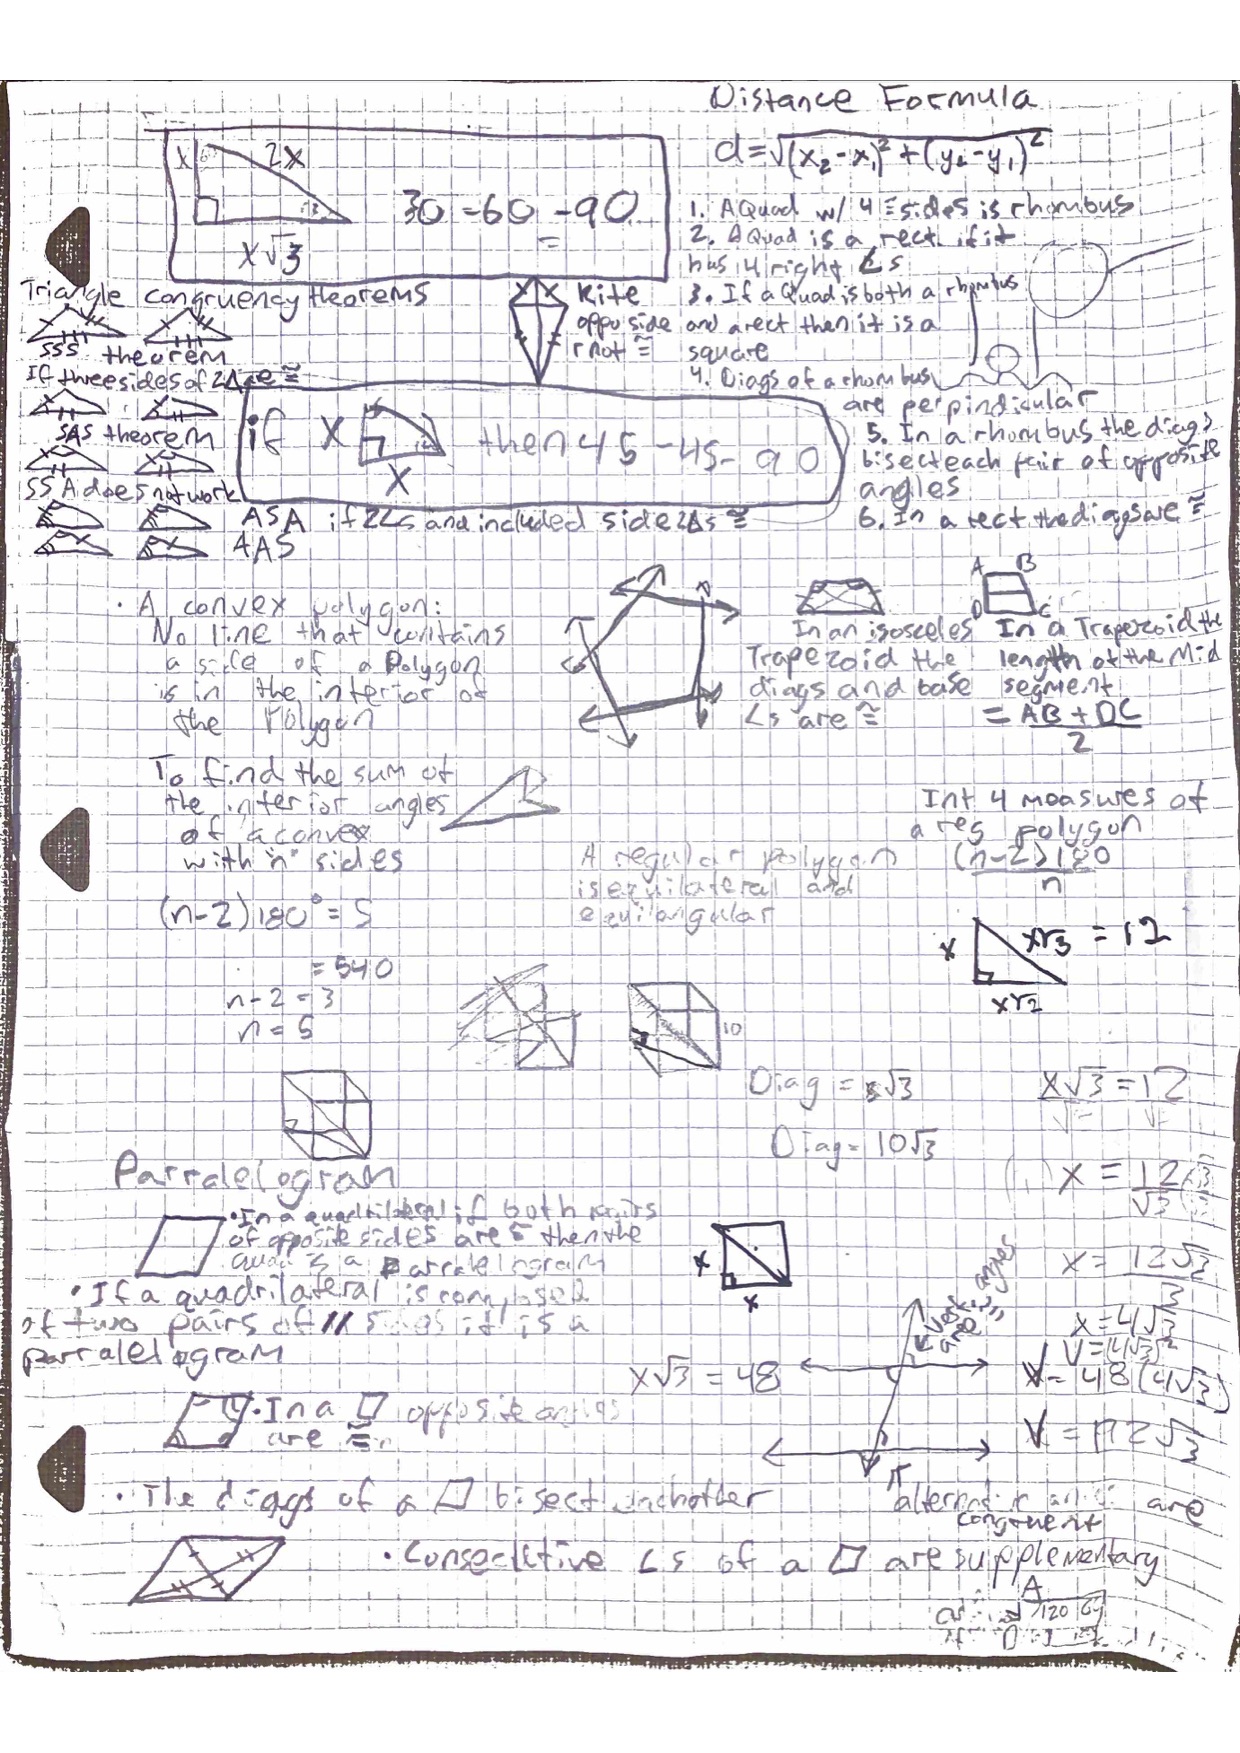 Distance Formula
d=√(x₂-x₁)²+(y₂-y₁)²
x 2x
x√3
30-60-90
1. A Quad w/ 4 ≅ sides is rhombus
2. A Quad is a rect. if it
has 4 right ∠s
3. If a Quad is both a rhombus
and a rect then it is a
square
4. Diags of a rhombus
are perpindicular
5. In a rhombus the diags
bisect each pair of opposite
angles
6. In a rect the diags are ≅
Triangle congruency theorems
SSS theorem
If three sides of 2Δ are ≅
SAS theorem
SSA does not work
ASA if 2∠s and included side 2Δs ≅
AAS
Kite
oppo side
r not ≅
if x x then 45-45-90
· A convex polygon:
No line that contains
a side of a Polygon
is in the interior of
the Polygon
A B
D C
In an isosceles
Trapezoid the
diags and base
∠s are ≅
In a Trapezoid the
length of the Mid
segment
= AB + DC
2
To find the sum of
the interior angles
of a convex
with "n" sides
(n-2)180° = S
= 540
n-2 = 3
n = 5
A regular polygon
is equilateral and
equilangular
Int 4 measures of
a reg polygon
(n-2)180
n
x x√3 = 12
x√2
10
Diag = s√3
Diag = 10√3
x√3 = 12
x = 12
√3
x = 12√3
3
x = 4√3
V = (4√3)²
V = 48(4√3)
V = 192√3
Parralelogram
· In a quadrilateral if both pairs
of opposite sides are ≅ then the
quad is a parralelogram
· If a quadrilateral is composed
of two pairs of // sides it is a
parralelogram
x
x
x√3 = 48
Vert. angles
are ≅
· In a ▱ opposite angles
are ≅
· The diags of a ▱ bisect eachother
alternate angles are
congruent
· Consecutive ∠s of a ▱ are supplementary
A
120